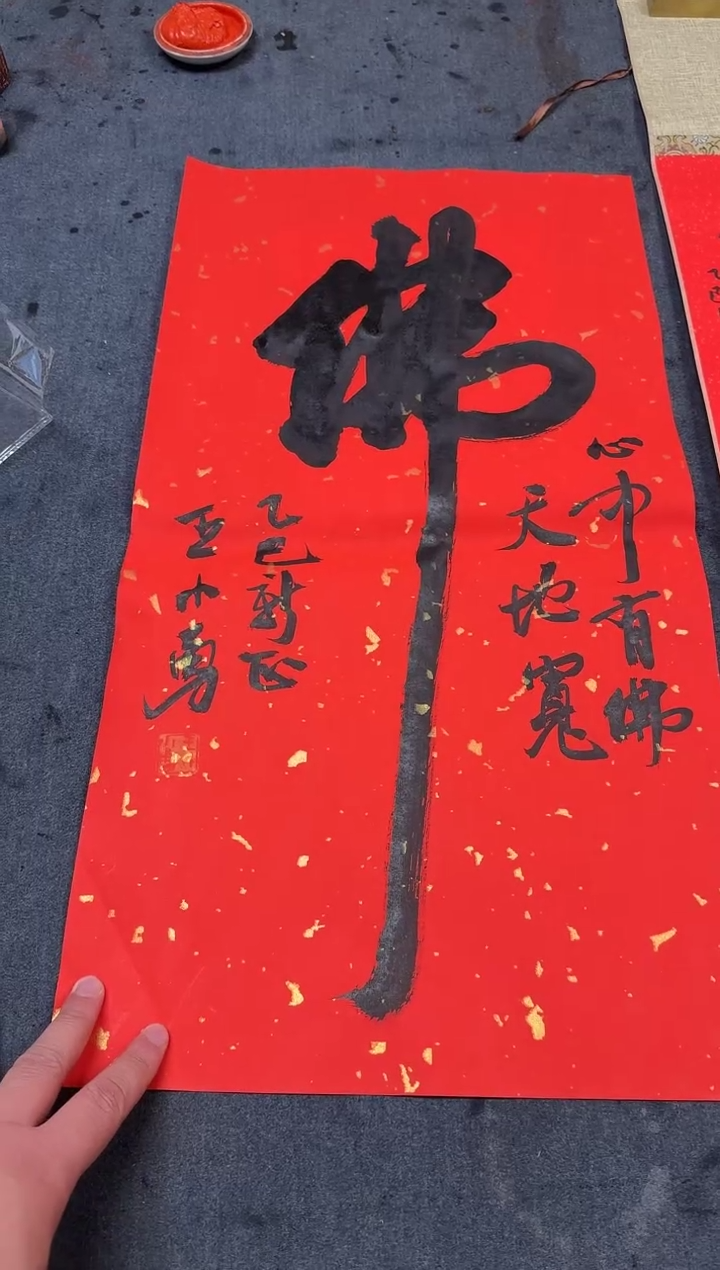 佛
心中有佛
天地寬
乙巳新正
王小勇